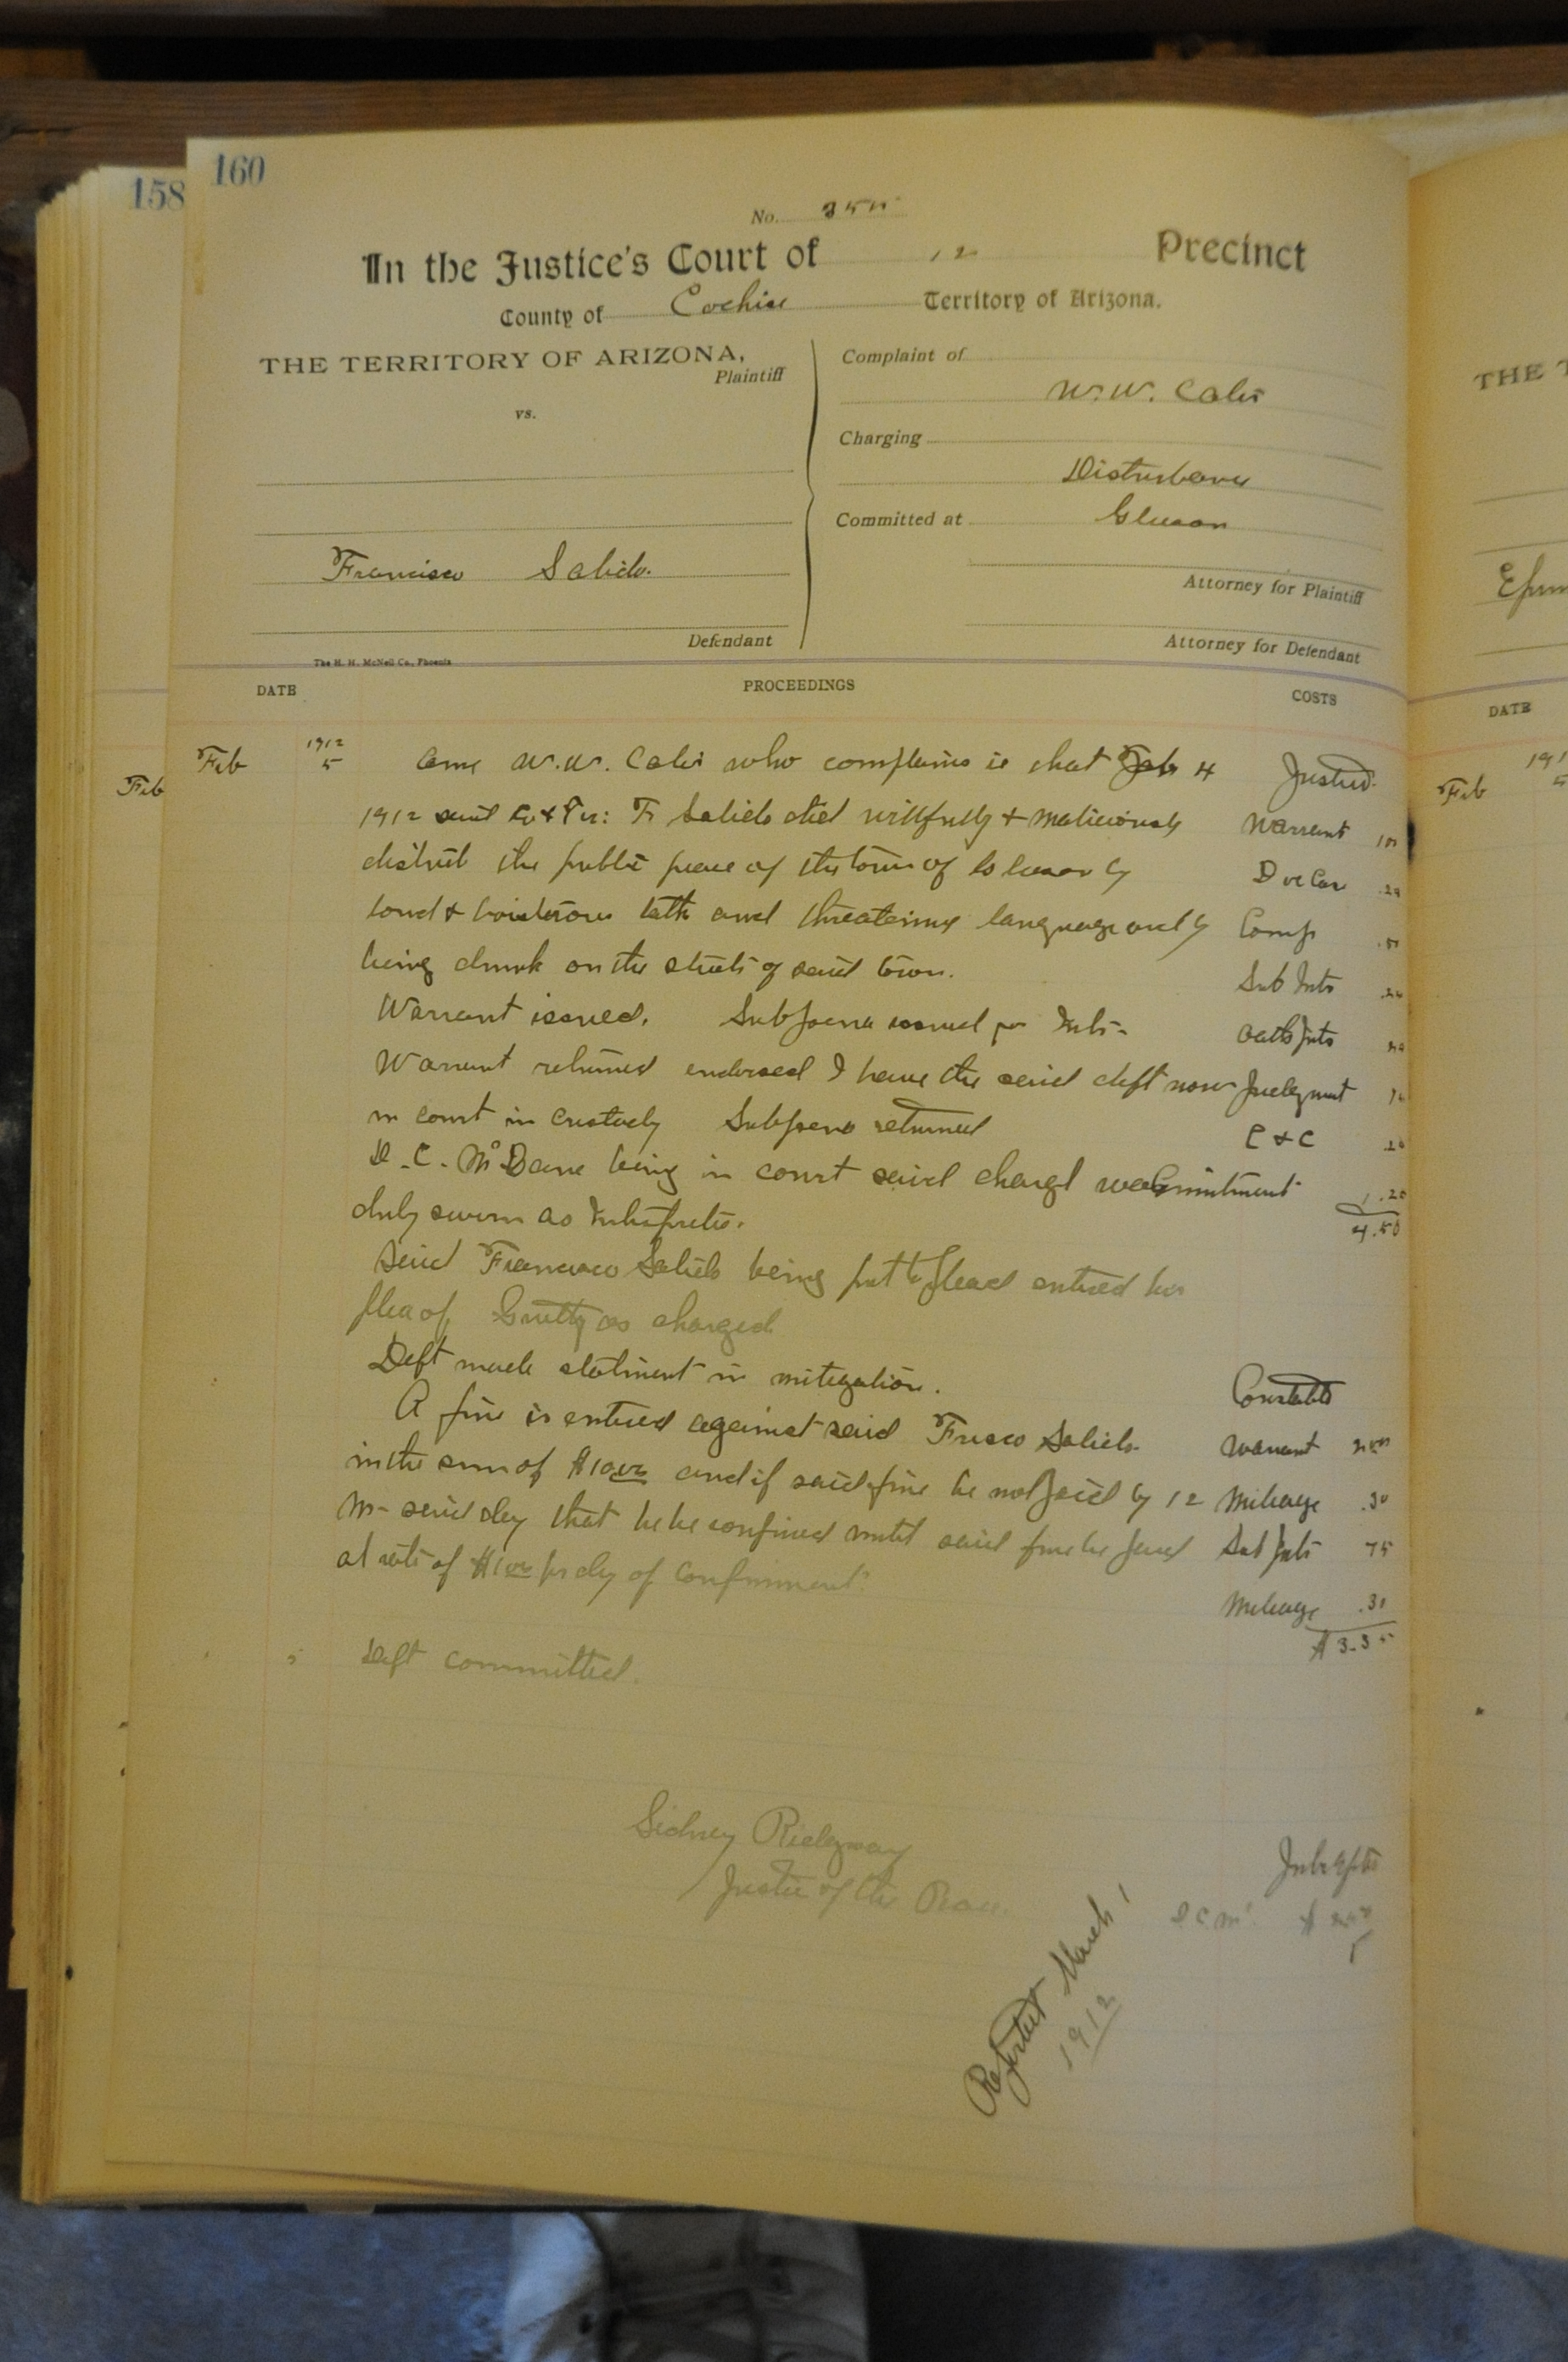 158
160
No. 355
In the Justice's Court of 12 Precinct
County of Cochise Territory of Arizona.
THE TERRITORY OF ARIZONA,
Plaintiff
vs.
Francisco Salido.
Defendant
Complaint of
W. W. Cates
Charging
Disturbance
Committed at Gleeson
Attorney for Plaintiff
Attorney for Defendant
The H. H. McNeil Co., Phoenix
DATE PROCEEDINGS COSTS
Feb 1912 5 Came W. W. Cates who complains is that Feb 4 Justice
1912 said Co & Ter: F Salido did willfully & maliciously Warrant
disturb the public peace of the town of Gleeson by Docket
loud & boisterous talk and threatening language and by Comp
being drunk on the streets of said town. Sub Intr
Warrant issued. Subpoena issued for Intr. Oath Intr
Warrant returned endorsed I have the said deft now Judgment
in court in custody Subpoena returned C & C
D. C. McBane being in court said charge was Comitment 1.20
duly sworn as Interpreter. 4.50
Said Francisco Salido being put to plead entered his
plea of Guilty as charged
Deft made statement in mitigation. Constable
A fine is entered against said Frisco Salido Warrant
in the sum of $10.00 and if said fine be not paid by 12 Mileage .30
M- said day that he be confined until said fine be paid Sub Intr 75
at rate of $1.00 pr day of Confinment. Mileage .30
$3.35
5 Deft committed.
Sidney Ridgway
Justice of the Peace.
Interpreter
D C M
Reported March 1
1912
Feb
THE T
DATE
Feb 191 5